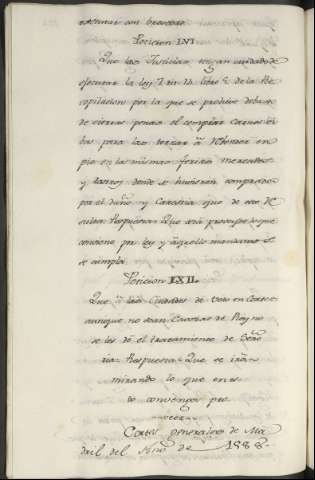 Peticion LVI
Que las Justicias tengan cuidado de
executar la ley 7 tit. 14. libro 6. de la Re-
copilacion por la que se prohive debaxo
de ciertas penas el comprar Carnes vi-
bas para las tornar à Vender en
pie en las mismas ferias, mercados
y lastros donde se huvieren comprado
por el daño y Carestia que de eso Re-
sulta: Respuesta: Que está proveydo lo que
conviene por ley y aquello mandamos
se cumpla
Peticion LXII.
Que à las Ciudades de Voto en Cortes
aunque no sean Cavezas de Reyno
se les dé el tratamiento de Seño-
ria: Respuesta: Que se irá
mirando lo que en es-
to convenga pro-
veer
Cortes generales de Ma-
dril del Año de 1588.